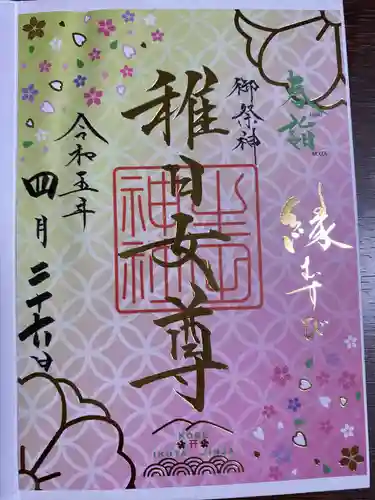 春詣
縁むすび
御祭神
稚日女尊
生田神社
令和五年
四月二十六日
KOBE
IKUTA JINJA